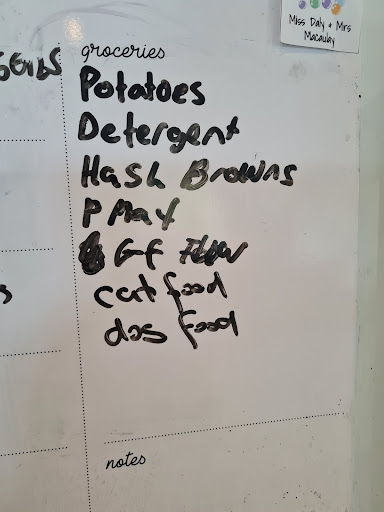 Miss Daly & Mrs
Macaulay
groceries
Potatoes
Detergent
Hash Browns
P May
GF
cat food
dog food
notes